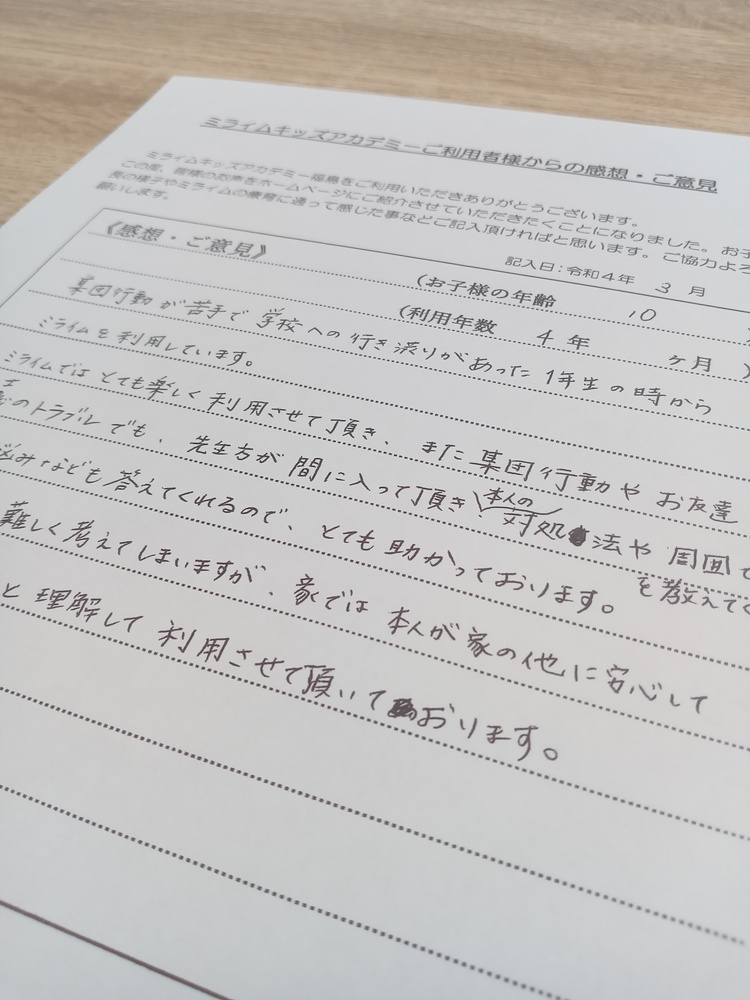 ミライムキッズアカデミーご利用者様からの感想・ご意見
ミライムキッズアカデミー福島をご利用いただきありがとうございます。
この度、皆様のお声をホームページにご紹介させていただきたくことになりました。お子
様の様子やミライムの療育に通って感じた事などご記入頂ければと思います。ご協力よろ
願いします。
記入日:令和4年 3 月
《感想・ご意見》
(お子様の年齢 10
(利用年数 4 年 ヶ月 )
集団行動が苦手で学校への行き渋りがあった1年生の時から
ミライムを利用しています。
ミライムではとても楽しく利用させて頂き、また集団行動やお友達
のトラブルでも、先生方が間に入って頂き、本人の対処法や周囲
を教えて
悩みなども答えてくれるので、とても助かっております。
難しく考えてしまいますが、家では本人が家の他に安心して
と理解して利用させて頂いております。